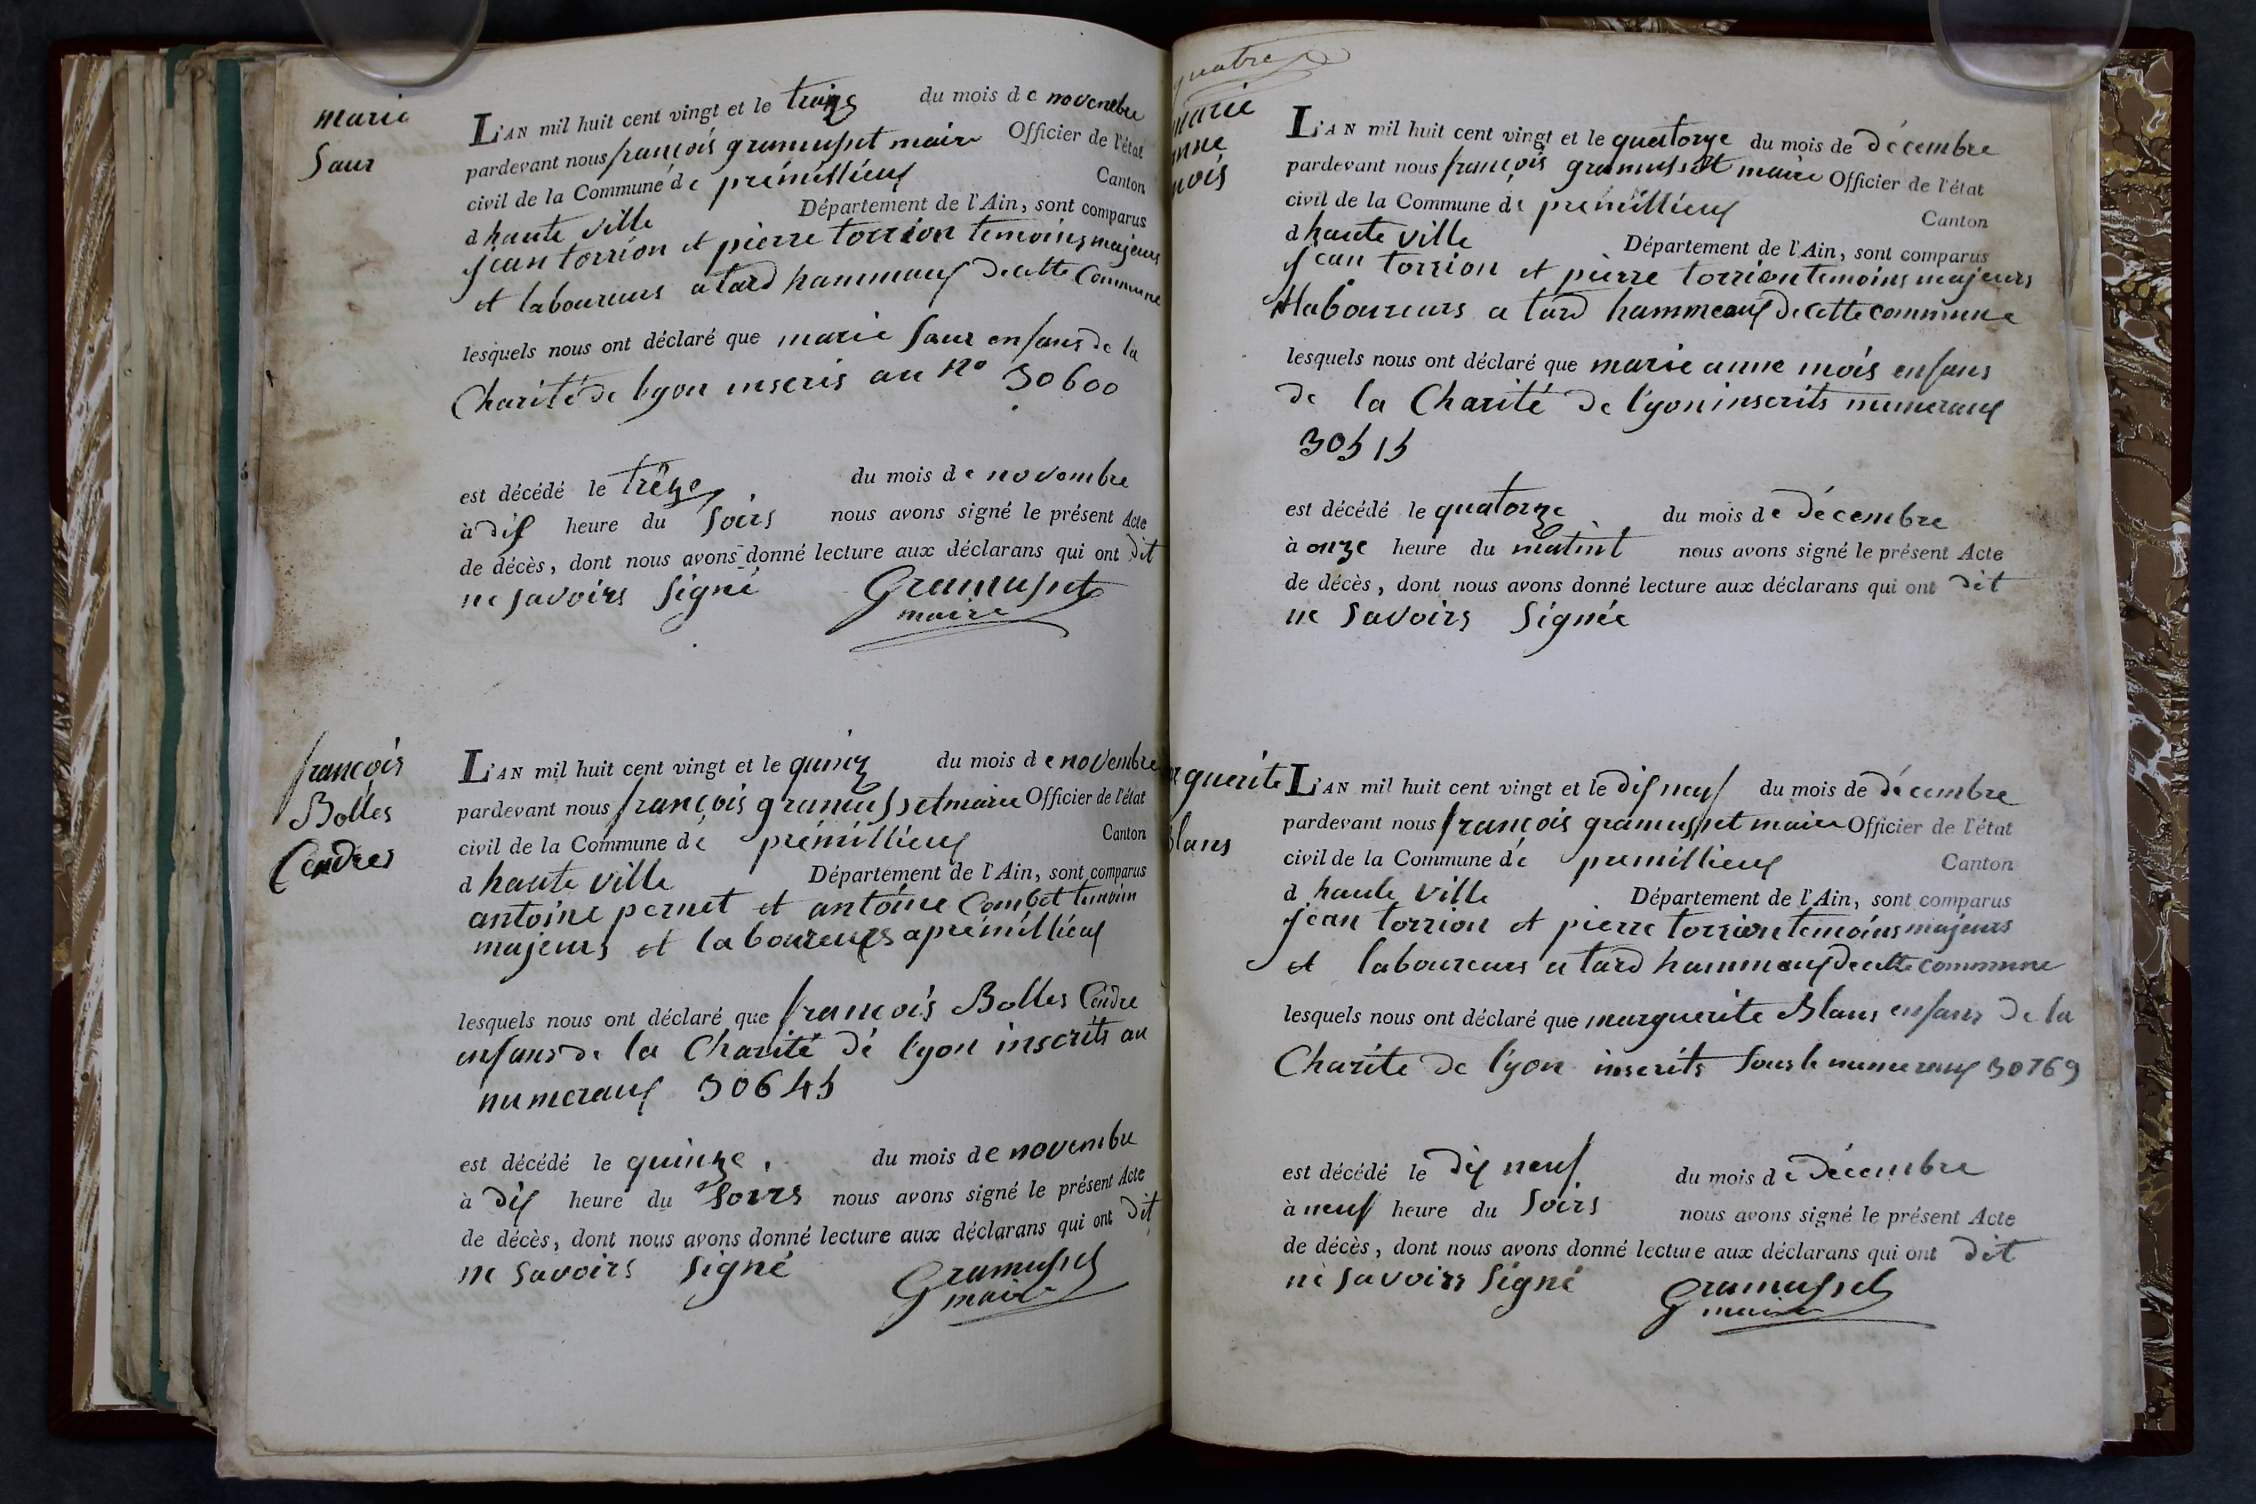 marie
Saur
L'AN mil huit cent vingt et le treize du mois de novembre
pardevant nous françois gramusset maire Officier de l'état
civil de la Commune de prémillieux Canton
d haute ville Département de l'Ain, sont comparus
jean torrion et pierre torrion temoins majeurs
et laboureurs a tard hammaux de cette Commune
lesquels nous ont déclaré que marie Saur enfans de la
Charité de lyon inscris au no 30600
est décédé le trêze du mois de novembre
à dix heure du Soirs nous avons signé le présent Acte
de décès, dont nous avons donné lecture aux déclarans qui ont dit
ne savoirs signé Gramusset
maire
françois
Bolles
Cendres
L'AN mil huit cent vingt et le quinz du mois de novembre
pardevant nous françois gramusset maire Officier de l'état
civil de la Commune de prémillieux Canton
d haute ville Département de l'Ain, sont comparus
antoine pernet et antoine Combet temoin
majeurs et laboureurs a prémillieux
lesquels nous ont déclaré que francois Bolles Cendre
enfans de la Charité dé lyon inscrits au
numeraux 30645
est décédé le quinze du mois de novembre
à dix heure du Soirs nous avons signé le présent Acte
de décès, dont nous avons donné lecture aux déclarans qui ont dit
ne savoirs signé Gramusset
maire
quatre
marie
anne
mois
L'AN mil huit cent vingt et le quatorze du mois de décembre
pardevant nous françois gramusset maire Officier de l'état
civil de la Commune de prémillieux Canton
d haute ville Département de l'Ain, sont comparus
jean torrion et pierre torrion temoins majeurs
et laboureurs a tard hammeaux de cette commune
lesquels nous ont déclaré que marie anne mois enfans
de la Charité de lyon inscrits numeraux
30515
est décédé le quatorze du mois de décembre
à onze heure du matint nous avons signé le présent Acte
de décès, dont nous avons donné lecture aux déclarans qui ont dit
ne Savoirs Signée
rguerite
Blans
L'AN mil huit cent vingt et le dix neuf du mois de décembre
pardevant nous françois gramusset maire Officier de l'état
civil de la Commune dé premillieux Canton
d haute ville Département de l'Ain, sont comparus
jean torrion et pierre torrion temoins majeurs
et laboureurs a tard hammaux de cette commune
lesquels nous ont déclaré que marguerite Blans enfans de la
Charite de lyon inscrits Sous le numeraux 30769
est décédé le dix neuf du mois de Décembre
à neuf heure du Soirs nous avons signé le présent Acte
de décès, dont nous avons donné lecture aux déclarans qui ont dit
ne savoirs Signé Gramusset
maire